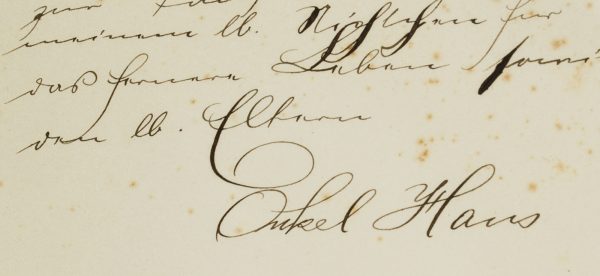 zur
meinem lb. Nichtchen für
das fernere Leben sowi
den lb. Eltern
Onkel Hans